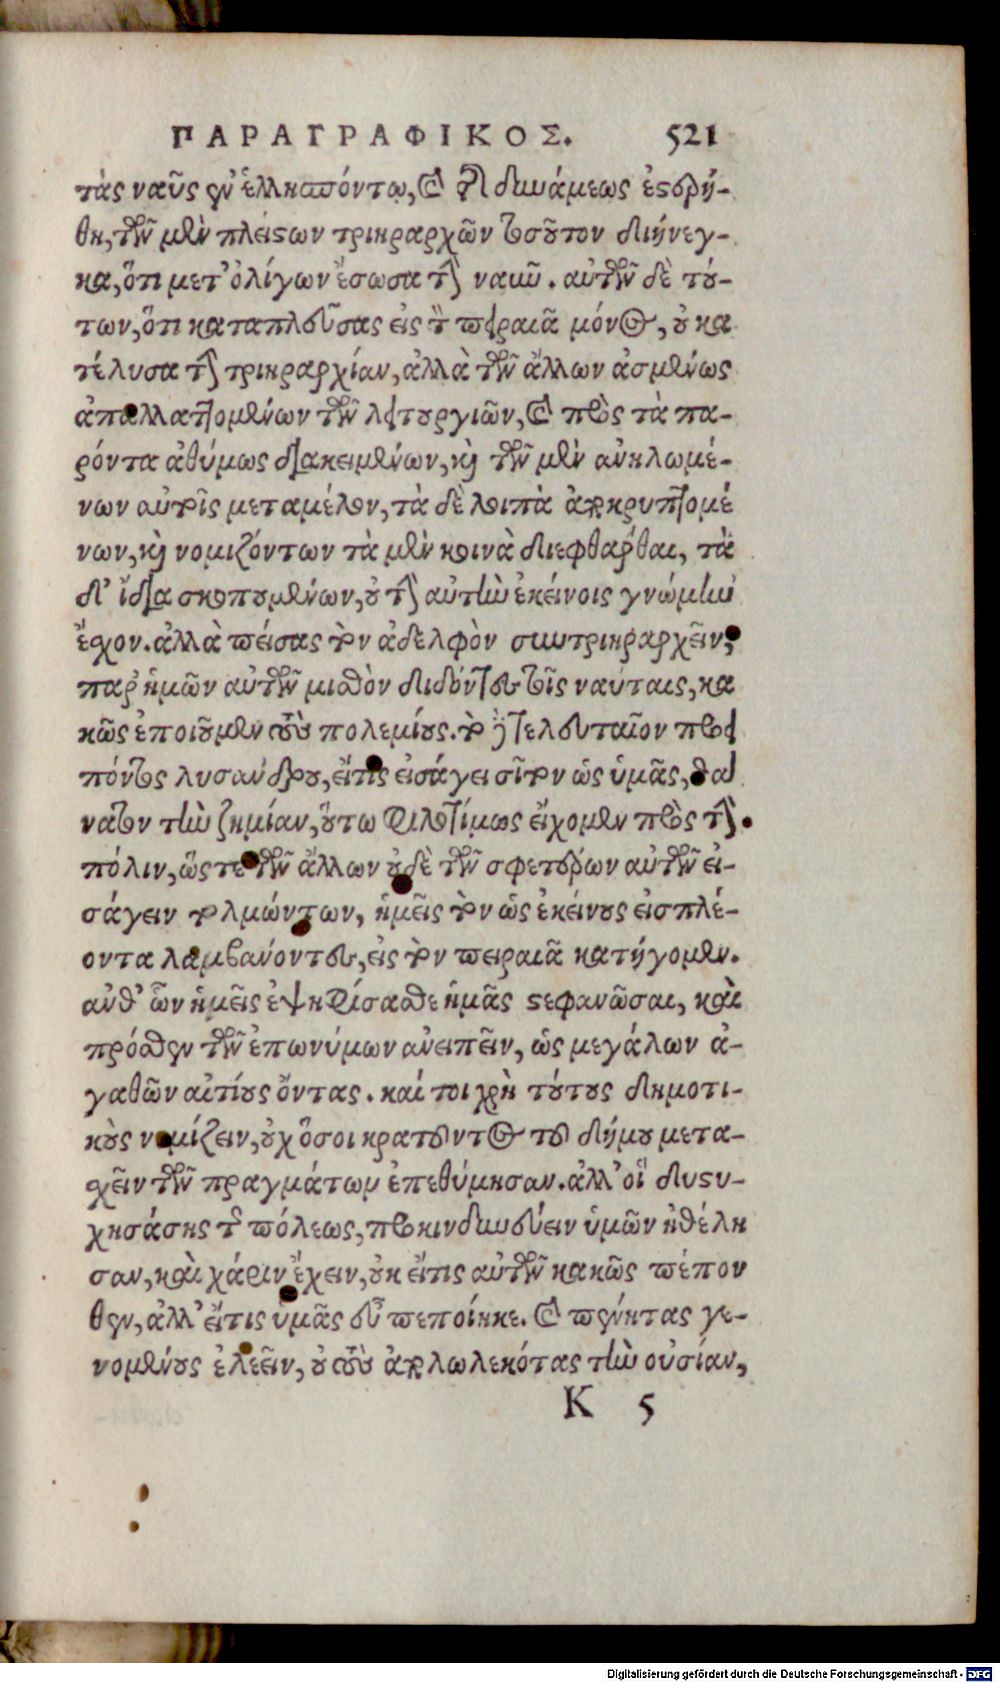 ΠΑΡΑΓΡΑΦΙΚΟΣ. 521
τὰς ναῦς ἐν ἑλλησπόντῳ, καὶ τῆς δυνάμεως ἐστερή-
θη, τῶν μὲν πλείστων τριηραρχῶν τοσοῦτον διήνεγ-
κα, ὅτι μετ' ὀλίγων ἔσωσα τὴν ναῦν. αὐτῶν δὲ τού-
των, ὅτι καταπλεύσας εἰς τὸν πειραιᾶ μόνος, οὐ κα
τέλυσα τὴν τριηραρχίαν, ἀλλὰ τῶν ἄλλων ἀσμένως
ἀπαλλαττομένων τῶν λειτουργιῶν, καὶ πρὸς τὰ πα-
ρόντα ἀθύμως διακειμένων, καὶ τῶν μὲν ἀνηλωμέ-
νων αὐτοῖς μεταμέλον, τὰ δὲ λοιπὰ ἀποκρυπτομέ
νων, καὶ νομιζόντων τὰ μὲν κοινὰ διεφθάρθαι, τὰ
δ' ἴδια σκοπουμένων, οὐ τὴν αὐτὴν ἐκείνοις γνώμην
ἔχον. ἀλλὰ πείσας τὸν ἀδελφὸν συντριηραρχεῖν,
παρ' ἡμῶν αὐτῶν μισθὸν διδόντες τοῖς ναύταις, κα
κῶς ἐποιοῦμεν τοὺς πολεμίους. τὸ δὲ τελευταῖον προει
πόντος λυσάνδρου, εἴτις εἰσάγει σῖτον ὡς ὑμᾶς, θά
νατον τὴν ζημίαν, οὕτω φιλοτίμως εἴχομεν πρὸς τὴν
πόλιν, ὥστε τῶν ἄλλων οὐδὲ τῶν σφετέρων αὐτῶν εἰ-
σάγειν τολμώντων, ἡμεῖς τὸν ὡς ἐκείνους εἰσπλέ-
οντα λαμβάνοντες, εἰς τὸν πειραιᾶ κατήγομεν.
ἀνθ' ὧν ἡμεῖς ἐψηφίσασθε ἡμᾶς στεφανῶσαι, καὶ
πρόσθεν τῶν ἐπωνύμων ἀνειπεῖν, ὡς μεγάλων ἀ-
γαθῶν αἰτίους ὄντας. καίτοι χρὴ τούτους δημοτι-
κοὺς νομίζειν, οὐχ ὅσοι κρατοῦντος τοῦ δήμου μετα-
χεῖν τῶν πραγμάτων ἐπεθύμησαν. ἀλλ' οἳ δυστυ-
χησάσης τῆς πόλεως, προκινδυνεύειν ὑμῶν ἠθέλη
σαν, καὶ χάριν ἔχειν, οὐκ εἴτις αὐτῶν κακῶς πέπον
θεν, ἀλλ' εἴτις ὑμᾶς εὖ πεποίηκε. καὶ πένητας γε-
νομένους ἐλεεῖν, οὐ τοὺς ἀπολωλεκότας τὴν οὐσίαν,
K 5
Digitalisierung gefördert durch die Deutsche Forschungsgemeinschaft - DFG